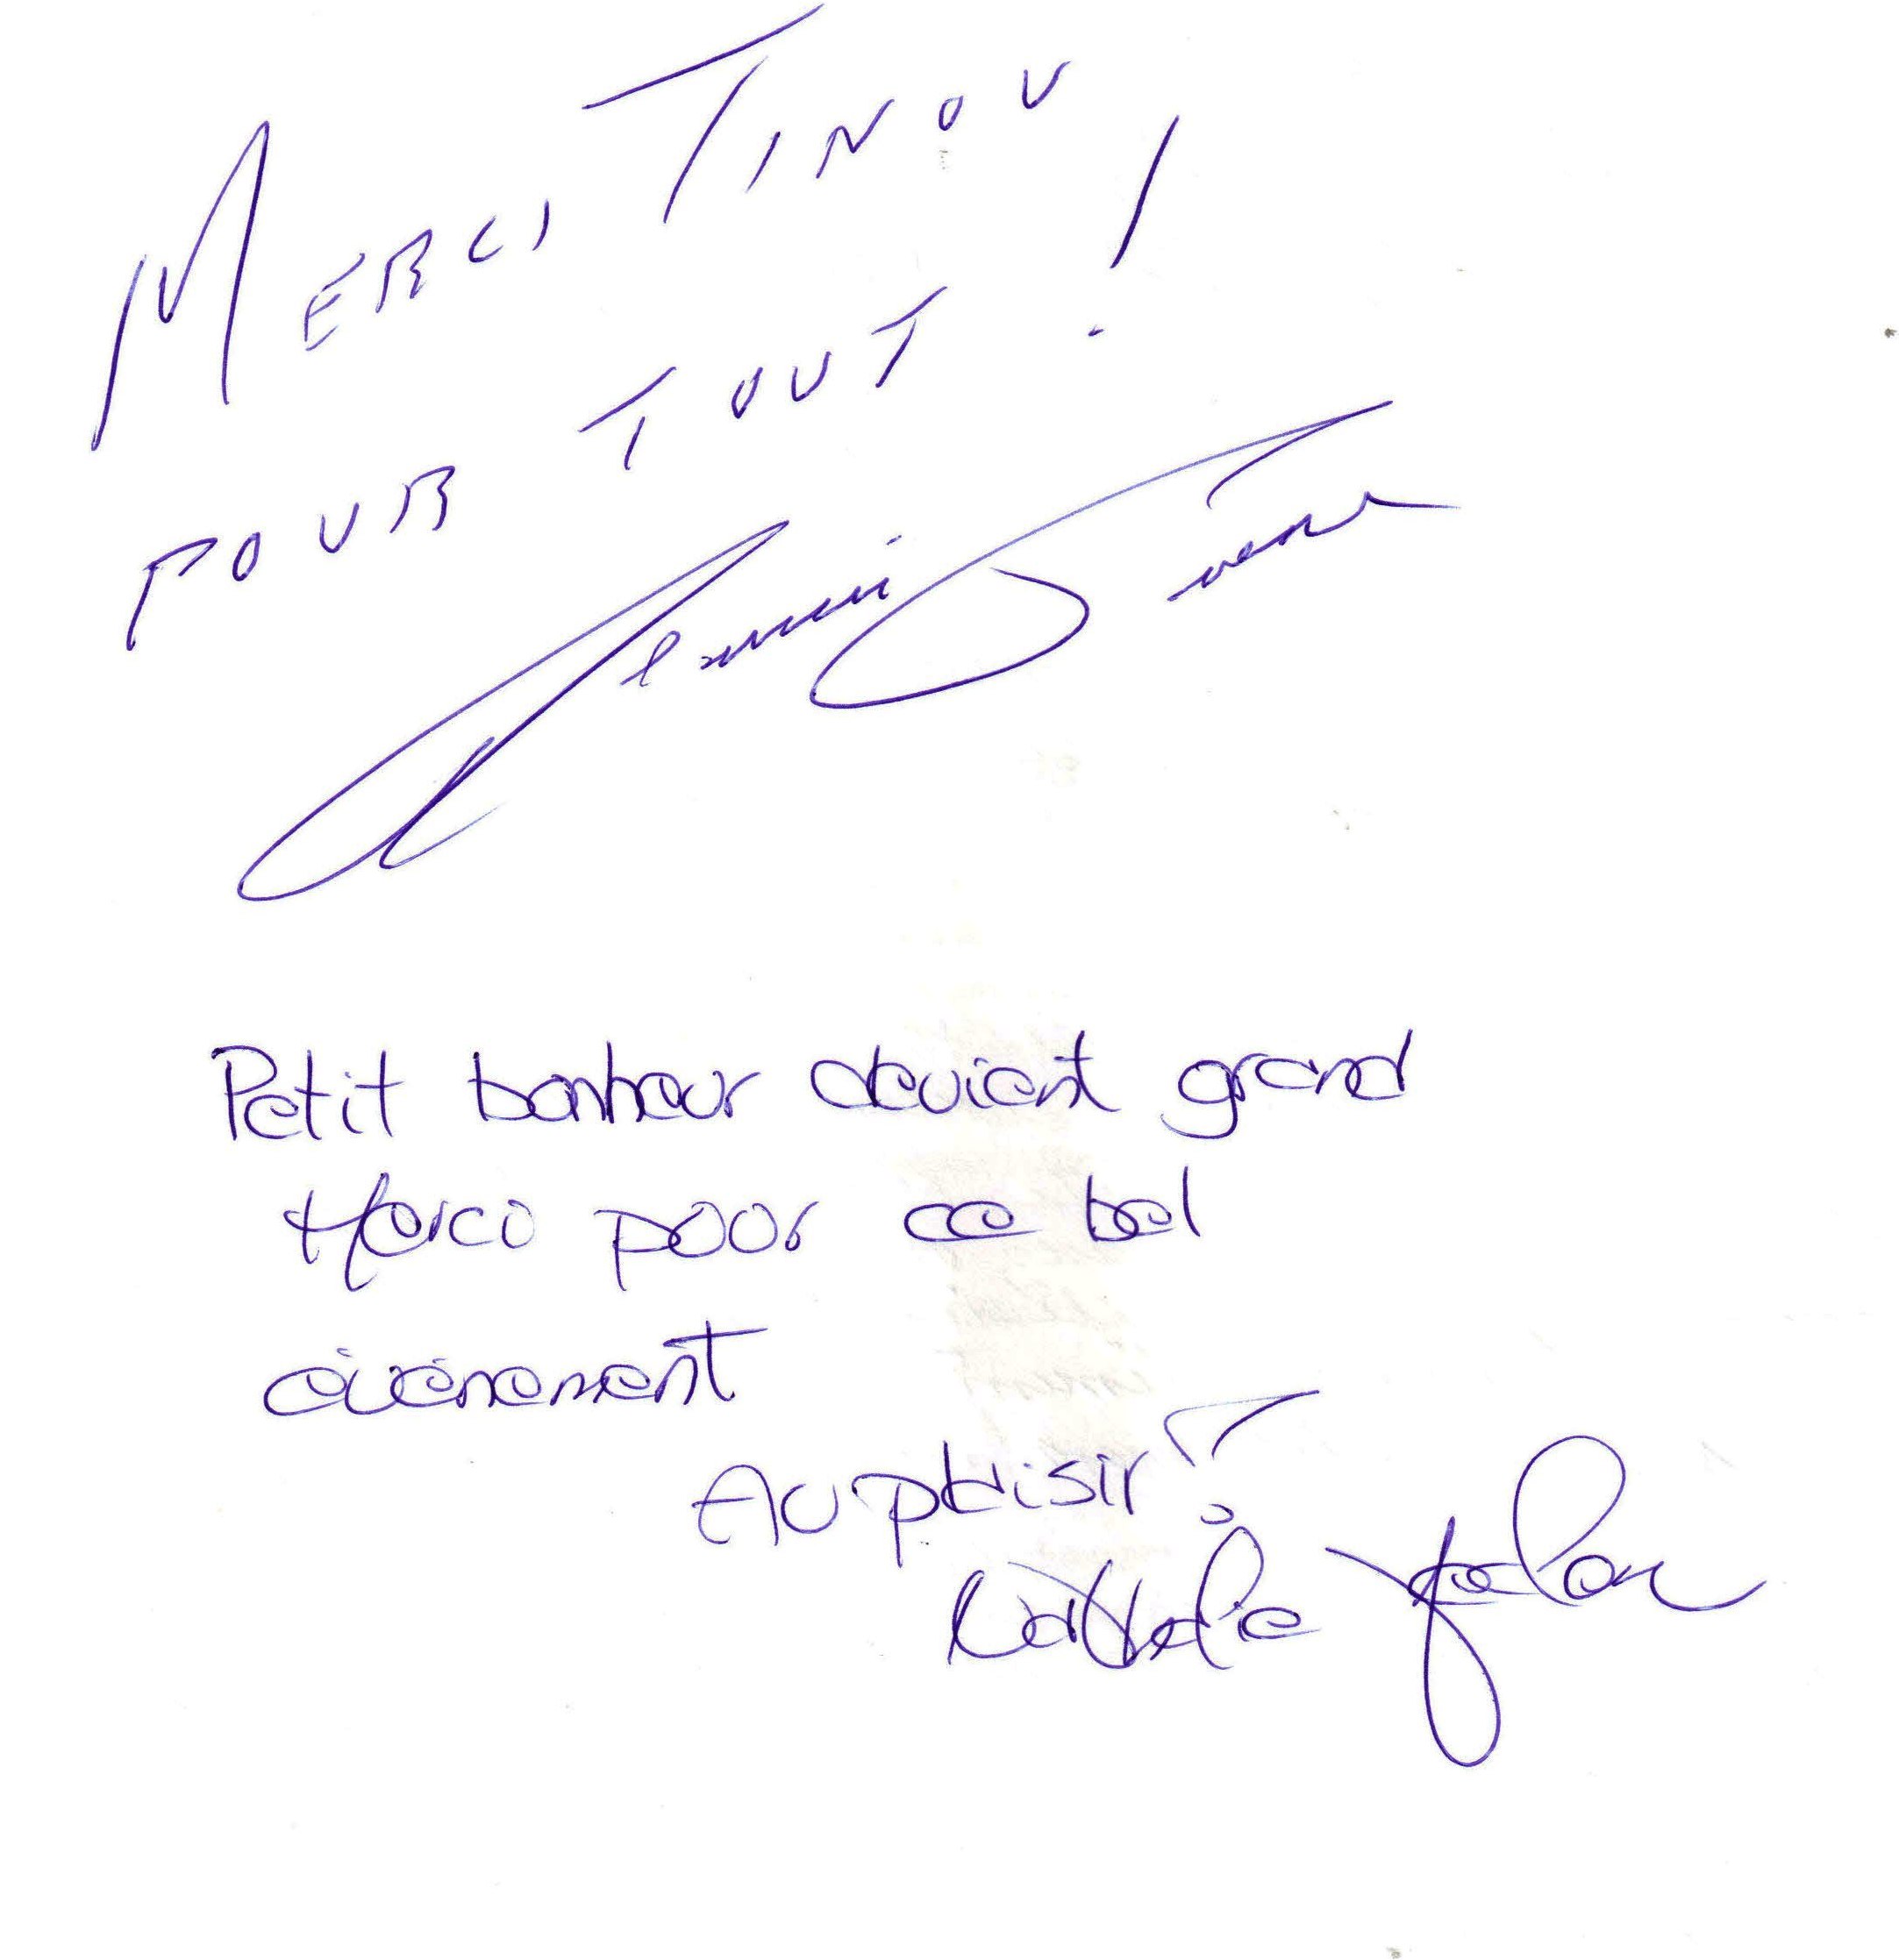 MERCI TINOU
POUR TOUT !
Petit bonheur devient grand
Merci pour ce bel
événement
Au plaisir !
Nathalie